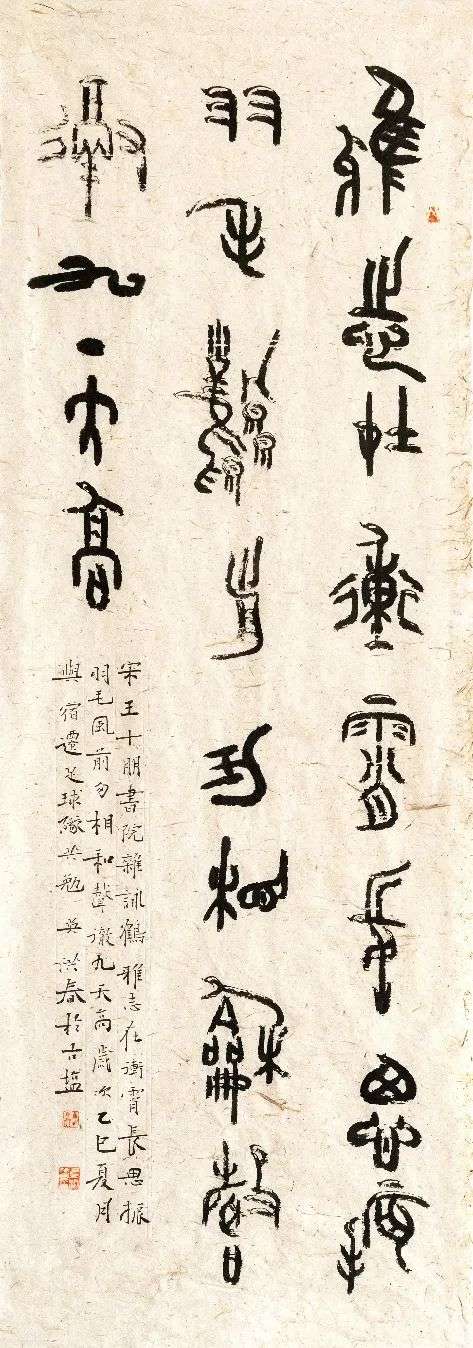 雅志在衝霄長思振
羽毛風前勿相和聲
徹九天高
宋王十朋書院雜詠鶴雅志在衝霄長思振
羽毛風前勿相和聲徹九天高歲次乙巳夏月
與宿遷足球隊共勉吳洪春於古